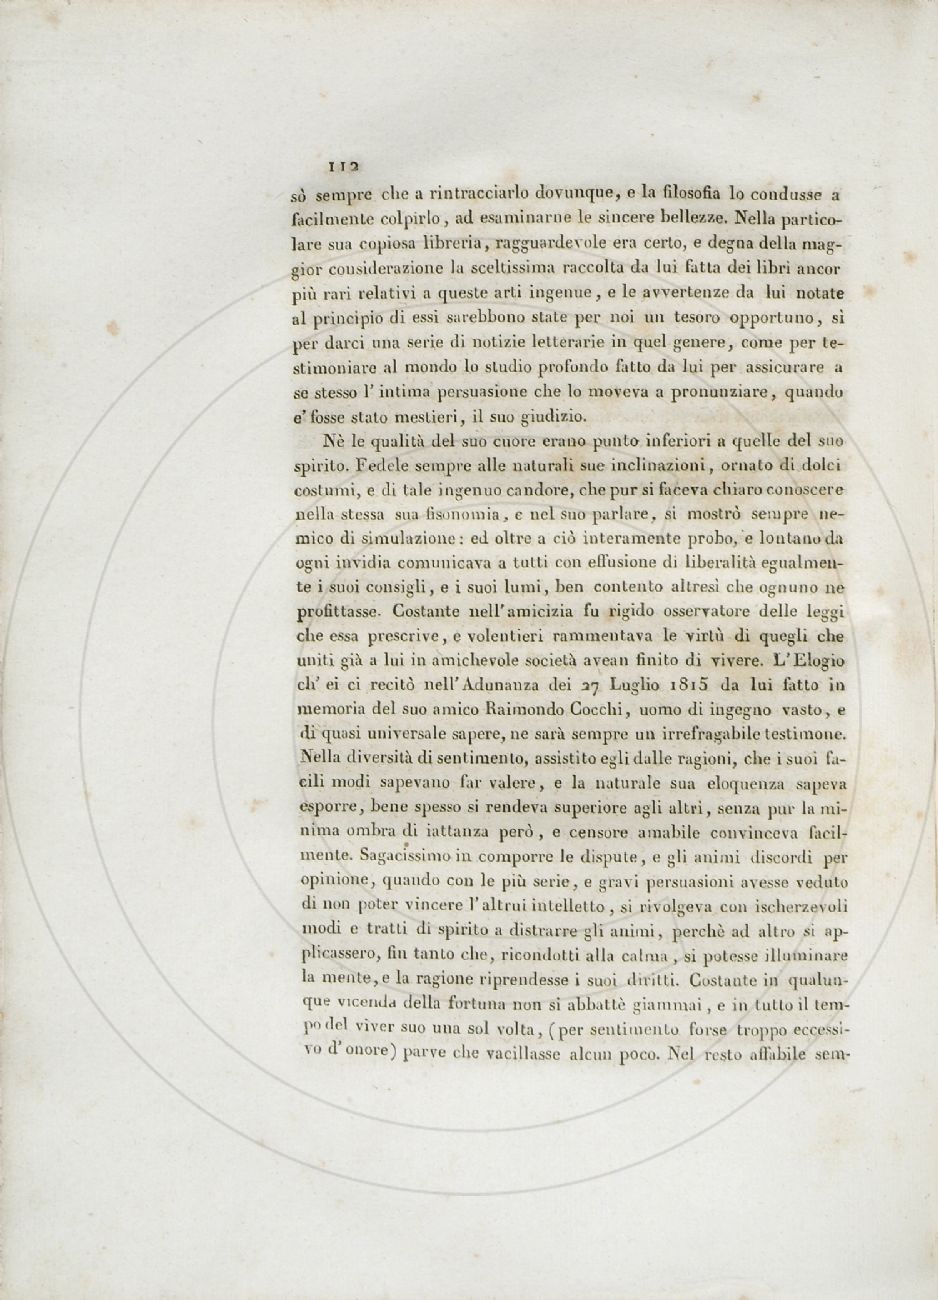 112
sò sempre che a rintracciarlo dovunque, e la filosofia lo condusse a
facilmente colpirlo, ad esaminarne le sincere bellezze. Nella partico-
lare sua copiosa libreria, ragguardevole era certo, e degna della mag-
gior considerazione la sceltissima raccolta da lui fatta dei libri ancor
più rari relativi a queste arti ingenue, e le avvertenze da lui notate
al principio di essi sarebbono state per noi un tesoro opportuno, sì
per darci una serie di notizie letterarie in quel genere, come per te-
stimoniare al mondo lo studio profondo fatto da lui per assicurare a
se stesso l'intima persuasione che lo moveva a pronunziare, quando
e' fosse stato mestieri, il suo giudizio.
Nè le qualità del suo cuore erano punto inferiori a quelle del suo
spirito. Fedele sempre alle naturali sue inclinazioni, ornato di dolci
costumi, e di tale ingenuo candore, che pur si faceva chiaro conoscere
nella stessa sua fisonomia, e nel suo parlare, si mostrò sempre ne-
mico di simulazione: ed oltre a ciò interamente probo, e lontano da
ogni invidia comunicava a tutti con effusione di liberalità egualmen-
te i suoi consigli, e i suoi lumi, ben contento altresì che ognuno ne
profittasse. Costante nell'amicizia fu rigido osservatore delle leggi
che essa prescrive, e volentieri rammentava le virtù di quegli che
uniti già a lui in amichevole società avean finito di vivere. L'Elogio
ch' ei ci recitò nell'Adunanza dei 27 Luglio 1815 da lui fatto in
memoria del suo amico Raimondo Cocchi, uomo di ingegno vasto, e
di quasi universale sapere, ne sarà sempre un irrefragabile testimone.
Nella diversità di sentimento, assistito egli dalle ragioni, che i suoi fa-
cili modi sapevano far valere, e la naturale sua eloquenza sapeva
esporre, bene spesso si rendeva superiore agli altri, senza pur la mi-
nima ombra di iattanza però, e censore amabile convinceva facil-
mente. Sagacissimo in comporre le dispute, e gli animi discordi per
opinione, quando con le più serie, e gravi persuasioni avesse veduto
di non poter vincere l'altrui intelletto, si rivolgeva con ischerzevoli
modi e tratti di spirito a distrarre gli animi, perchè ad altro si ap-
plicassero, fin tanto che, ricondotti alla calma, si potesse illuminare
la mente, e la ragione riprendesse i suoi diritti. Costante in qualun-
que vicenda della fortuna non si abbattè giammai, e in tutto il tem-
po del viver suo una sol volta, (per sentimento forse troppo eccessi-
vo d'onore) parve che vacillasse alcun poco. Nel resto affabile sem-